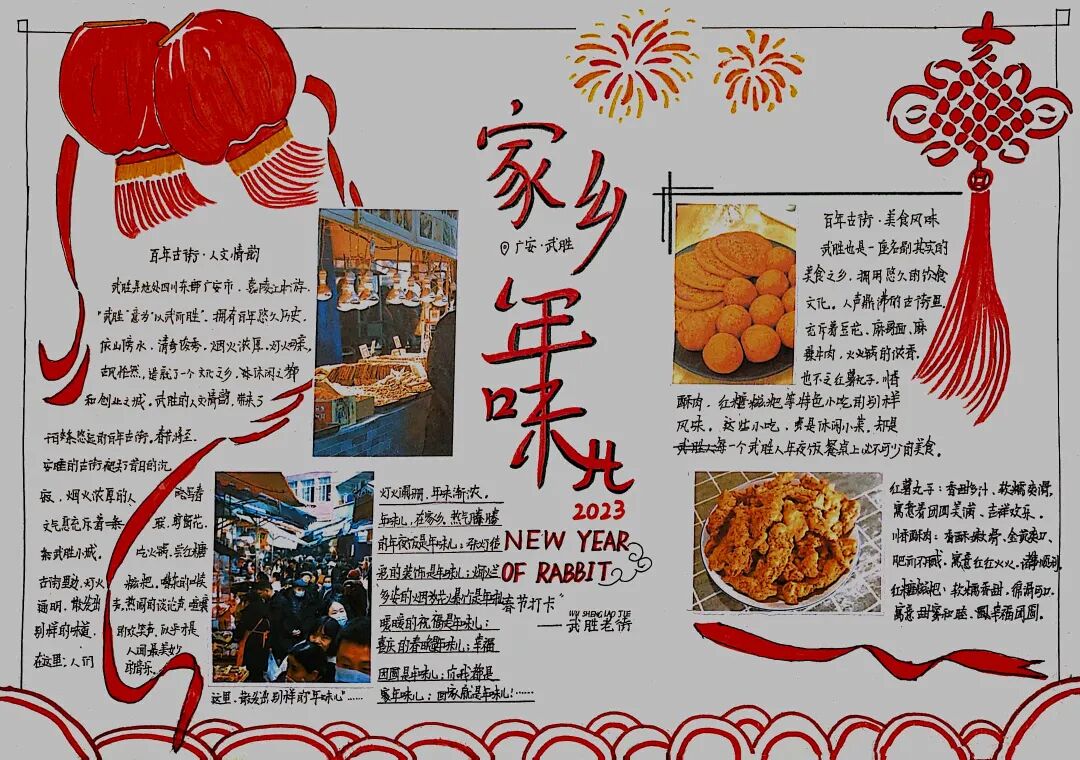 家乡
广安·武胜
年味儿
2023
NEW YEAR
OF RABBIT
"春节打卡"
WU SHENG LAO JIE
——武胜老街
百年古街·人文情韵
武胜是地处四川东部广安市,嘉陵江中游,
"武胜"意为"以武而胜",拥有百年悠久历史,
依山傍水,清奇俊秀,烟火浓厚,灯火
古朴怡然,造就了一个文化之乡、休闲之都
和创业之城。武胜的人文情韵,带来了
百年古街。春节将至,
古街 昔日的沉
寂,烟火浓厚的人
文气息充斥着一条
条武胜小城。
古街里动,灯火
通明,散发出
别样的味道,
在这里,人们
贴写春
联,剪窗花,
吃火锅,尝红糖
糍粑,
热闹的谈论声,
的欢笑声,似乎才是
人间最美妙
的音乐。
这里,散发出别样的"年味儿"……
灯火阑珊,年味渐浓。
年味儿,在家乡。热气腾腾
的年夜饭是年味儿;张灯结
彩的装饰是年味儿;灿烂
多姿的烟花是年味
暖暖的祝福是年味儿;
喜庆的春联是年味儿;幸福
团圆是年味儿;你我都是
家年味儿;回家就是年味儿!……
百年古街·美食风味
武胜也是一座名副其实的
美食之乡,拥用悠久的饮食
文化。人声鼎沸的古街里,
充斥着豆花、麻哥面、麻
辣牛肉、火火锅的浓香。
也不乏红薯丸子、川香
酥肉、红糖糍粑等特色小吃的别样
风味。这些小吃,亦是休闲小菜,却是
武胜人每一个武胜人年夜饭餐桌上必不可少的美食。
红薯丸子:香甜多汁、软糯爽滑,
寓意着团圆美满、吉祥欢乐。
川香酥肉:香酥嫩滑、金黄爽口、
肥而不腻,寓意红红火火、
红糖糍粑:软糯香甜、绵滑可口,
寓意甜蜜和睦、